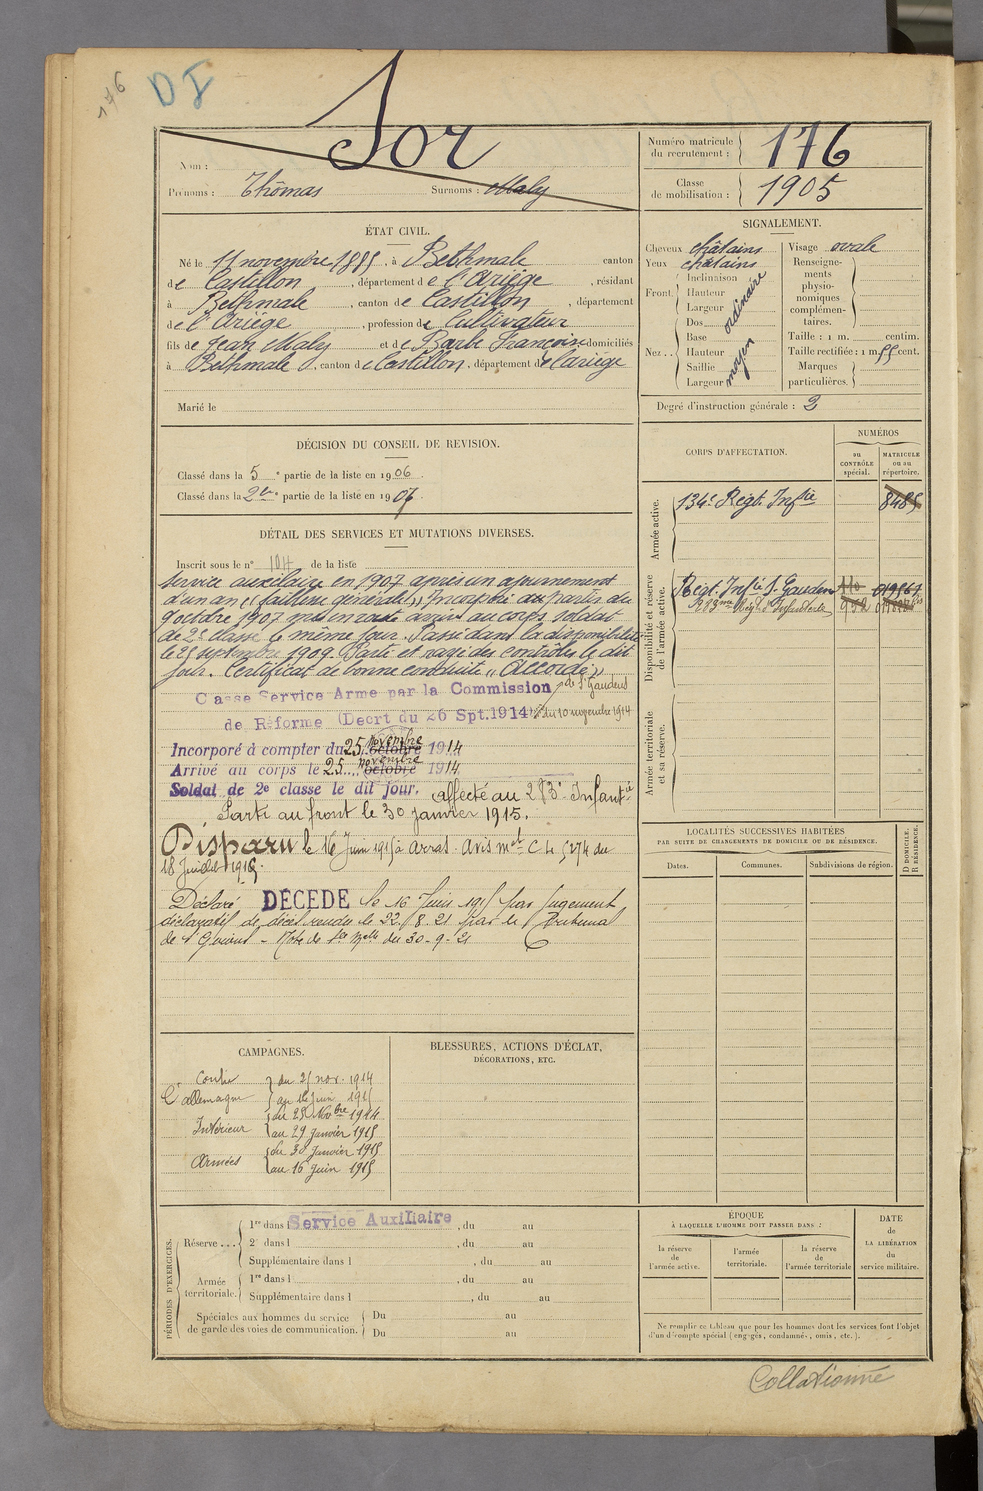 176
DI
Sor
Nom :
Prénoms : Thômas Surnoms : Maly
Numéro matricule du recrutement : 176
Classe de mobilisation : 1905
ÉTAT CIVIL.
Né le 11 novembre 1885, à Bethmale canton
de Castillon, département de l'Ariège, résidant
à Bethmale, canton de Castillon, département
de l'Ariège, profession de Cultivateur
fils de Jean Maly et de Barbe Françoise domiciliés
à Bethmale, canton de Castillon, département de l'Ariège
Marié le
SIGNALEMENT.
Cheveux châtains
Yeux châtains
Front. Inclinaison Hauteur Largeur ordinaire
Nez . . Dos Base Hauteur Saillie Largeur moyen
Visage ovale
Renseignements physionomiques complémentaires.
Taille : 1 m. centim.
Taille rectifiée : 1 m. 55 cent.
Marques particulières.
Degré d'instruction générale : 2
DÉCISION DU CONSEIL DE REVISION.
Classé dans la 5e partie de la liste en 1906.
Classé dans la 2e partie de la liste en 1907.
DÉTAIL DES SERVICES ET MUTATIONS DIVERSES.
Inscrit sous le n° 104 de la liste
Service auxiliaire en 1907 après un ajournement
d'un an "faiblesse générale" Incorporé à partir du
9 octobre 1907 mis en route arrivé au corps soldat
de 2e classe le même jour. Passé dans la disponibilité
le 25 septembre 1909. Parti et rayé des contrôles le dit
jour. Certificat de bonne conduite "Accordé"
Classe Service Armé par la Commission de St Gaudens
de Réforme (Decrt du 26 Spt.1914) du 10 novembre 1914
Incorporé à compter du 25 octobre novembre 1914
Arrivé au corps le 25 octobre novembre 1914
Soldat de 2e classe le dit jour. affecté au 283e Infantie
Parti au front le 30 janvier 1915.
Disparu le 16 Juin 1915 à Arras. Avis mel C L 5274 du
18 Juillet 1915.
Déclaré DÉCÉDÉ le 16 Juin 1915 par jugement
déclaratif de décès rendu le 22.8.21 par le Tribunal
de St Girons - Note de du 30-9-21
CORPS D'AFFECTATION.
NUMÉROS
au CONTRÔLE spécial.
MATRICULE ou au répertoire.
Armée active.
134e Régt Infie 8485
Disponibilité et réserve de l'armée active.
Régt. Infie St. Gaudens 110 019567
283me Régt d'Infanterie
Armée territoriale et sa réserve.
LOCALITÉS SUCCESSIVES HABITÉES
PAR SUITE DE CHANGEMENTS DE DOMICILE OU DE RÉSIDENCE.
Dates. Communes. Subdivisions de région.
D DOMICILE. R RÉSIDENCE.
CAMPAGNES.
Contre l'allemagne du 25 nov. 1914
au 16 Juin 1915
Intérieur du 25 Nobre 1914
au 29 Janvier 1915
Armées du 30 Janvier 1915
au 16 Juin 1915
BLESSURES, ACTIONS D'ÉCLAT,
DÉCORATIONS, ETC.
PÉRIODES D'EXERCICES.
Réserve . . . 1re dans l Service Auxiliaire, du au
2e dans l , du au
Supplémentaire dans l , du au
Armée territoriale. 1re dans l , du au
Supplémentaire dans l , du au
Spéciales aux hommes du service de garde des voies de communication. Du au
Du au
ÉPOQUE
À LAQUELLE L'HOMME DOIT PASSER DANS :
la réserve de l'armée active.
l'armée territoriale.
la réserve de l'armée territoriale
DATE de LA LIBÉRATION du service militaire.
Ne remplir ce tableau que pour les hommes dont les services font l'objet
d'un décompte spécial (engagés, condamnés, omis, etc.).
Collationné